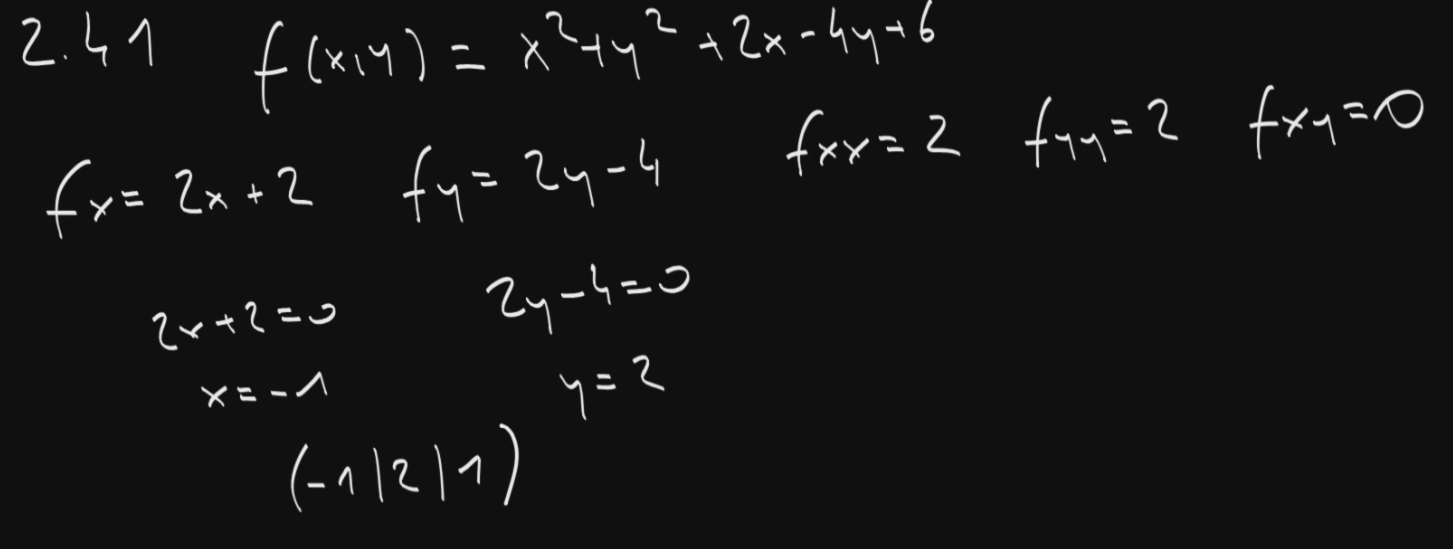 2.41 f(x,y) = x²+y²+2x-4y+6
fx= 2x+2 fy= 2y-4 fxx= 2 fyy= 2 fxy=0
2x+2=0 2y-4=0
x=-1 y=2
(-1|2|1)